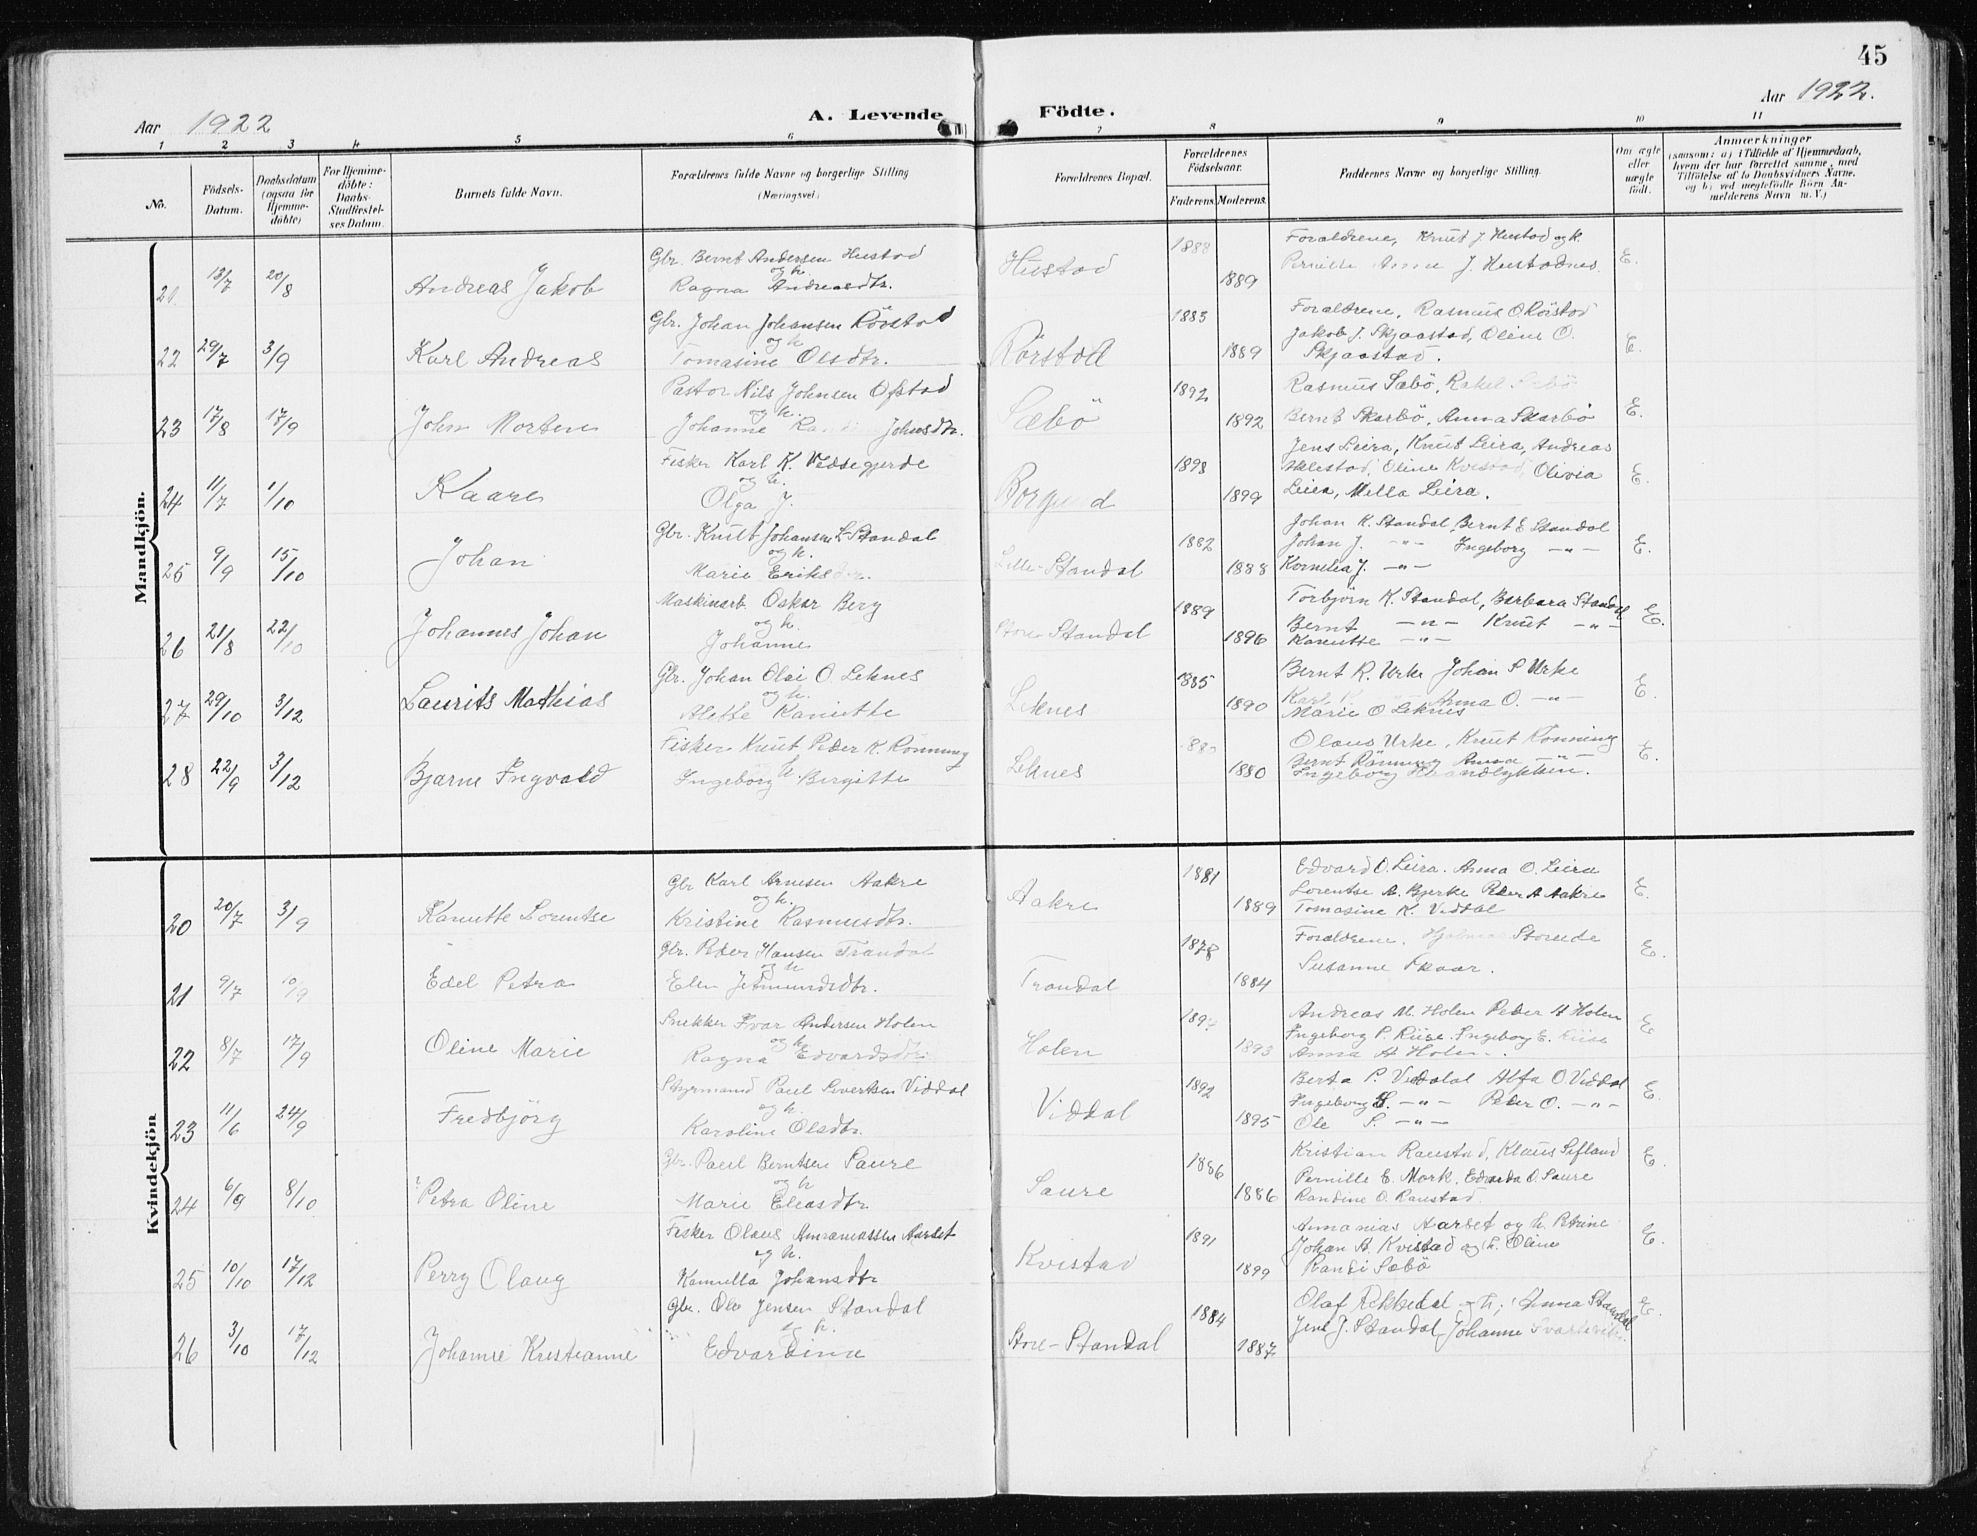 45
Aar 1922
A. Levende
Födte.
Aar 1922.
1 2 3 4 5 6 7 8 9 10 11
No.
Födsels-Datum.
Daabsdatum (ogsaa for Hjemmedöbte)
For Hjemmedöbte: Daabs-Stadfæstelses Datum.
Barnets fulde Navn.
Forældrenes fulde Navne og borgerlige Stilling (Næringsvei)
Forældrenes Bopæl.
Forældrenes Födselsaar.
Faderens. Moderens.
Faddernes Navne og borgerlige Stilling.
Om ægte eller uægte födt.
Anmærkninger
(saasom: a) i Tilfælde af Hjemmedaab, hvem der har forrettet samme, med Tilföielse af to Daabsvidners Navne, og b) ved uægtefödte Börn Anmelderens Navn m. V.)
Mandkjön.
Gbr. Bernt Andersen Hustad 1888 Forældrene, Knut J. Hustad og h.
21. 13/7 20/8 Andreas Jakob og h. Ragna Andreasdtr. Hustad 1889 Pernille Anna J. Hustadnes. E.
Gbr. Johan Johansen Rörstad 1883 Forældrene, Rasmus O Rörstad
22 29/7 3/9 Karl Andreas og h. Tomasine Olsdtr. Rörstad 1889 Jakob J. Skjaastad, Oline O. Skjaastad. E.
Pastor Nils Johnsen Ofstad 1892 Rasmus Sæbö, Rakel Sæbö
23 17/8 17/9 John Morten og h. Johanne Johnsdtr. Sæbö 1892 Bernt Skarbö, Anna Skarbö E.
Fisker Karl K. Vedsegjerde 1898 Jens Leira, Knut Leira, Andreas
24 11/7 1/10 Kaare og h. Olga J. 1899 Oline Kvistad, Olivia Leira, Mella Leira. E.
Gbr. Knut Johansen L Standal 1882 Johan K. Standal, Bernt E Standal
25 9/9 15/10 Johan og h. Marie Lille-Standal 1888 Johan J. -"- Ingeborg -"- Kornelia J. -"- E.
Maskinarb. Oskar Berg 1889 Torbjörn K. Standal, Barbara Standal
26 21/8 22/10 Johannes Johan og h. Johanne Store Standal 1896 Bernt -"- Knut -"- Kanutte -"- E.
Gbr. Johan Olai O. Leknes 1885 Bernt R. Urke Johan S Urke
27 29/10 3/12 Laurits Mathias og h. Alette Kanutte Leknes 1890 Karl Anna O. -"- Marie O Leknes E.
Fisker Knut Peder K. Rönning Olaus Urke, Knut Rönning
28 22/9 3/12 Bjarne Ingvald h. Ingeborg Bergitte Leknes 1880 Bernt Rönning Anna -"- Ingeborg E.
Kvindekjön
Gbr Karl Arnesen Aakre 1881 Edvard O. Leira. Anna O. Leira
20 20/7 3/9 Kanutte Lorentse og h. Kristine Rasmusdtr. Aakre 1889 Lorentse A. Bjerke Peder A Aakre Tomasine K. Viddal E.
Gbr. Peder Hansen Trandal 1878 Forældrene, Hjalmar Storeide
21 9/7 10/9 Edel Petra og h Elen Jetmundsdtr. Trandal 1884 Susanne Skaar. E.
Snekker Ivar Andersen Holen Andreas M. Holen Peder A Holen
22 8/7 17/9 Oline Marie og h Ragna Edvardsdtr. Holen 1893 Ingeborg P. Riise. Ingeborg E. Riise Anna A Holen. E
Styrmand Paul Sivertsen Viddal 1892 Berta P. Viddal Alfa O. Viddal
23 11/6 24/9 Fredbjörg og h Karoline Olsdtr. Viddal 1895 Ingeborg S. -"- Peder O. -"- Ole S. -"- E.
Gbr. Paul Berntsen Saure 1886 Kristian Raustad, Klaus Sifland
24 6/9 8/10 Petra Oline og h Marie Eleasdtr. Saure 1886 Pernille E. Mork, Edvarda O. Saure Randine O. Raustad. E.
Fisker Olaus Annaniassen Aarset 1891 Annanias Aarset og h. Petrine
25 10/10 17/12 Perry Olaug og h. Kamella Johansdtr Kvistad 1899 Johan A. Kvistad og h. Oline Randi Sæbö E.
Gbr. Ole Jensen Standal 1884 Olaf Rekkedal - h; Anna Standal
26 3/10 17/12 Johanne Kristianne h. Edvardine Store-Standal 1887 Jens J. Standal, Johanne E.